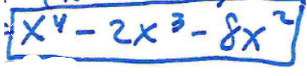 x⁴ - 2x³ - 8x²